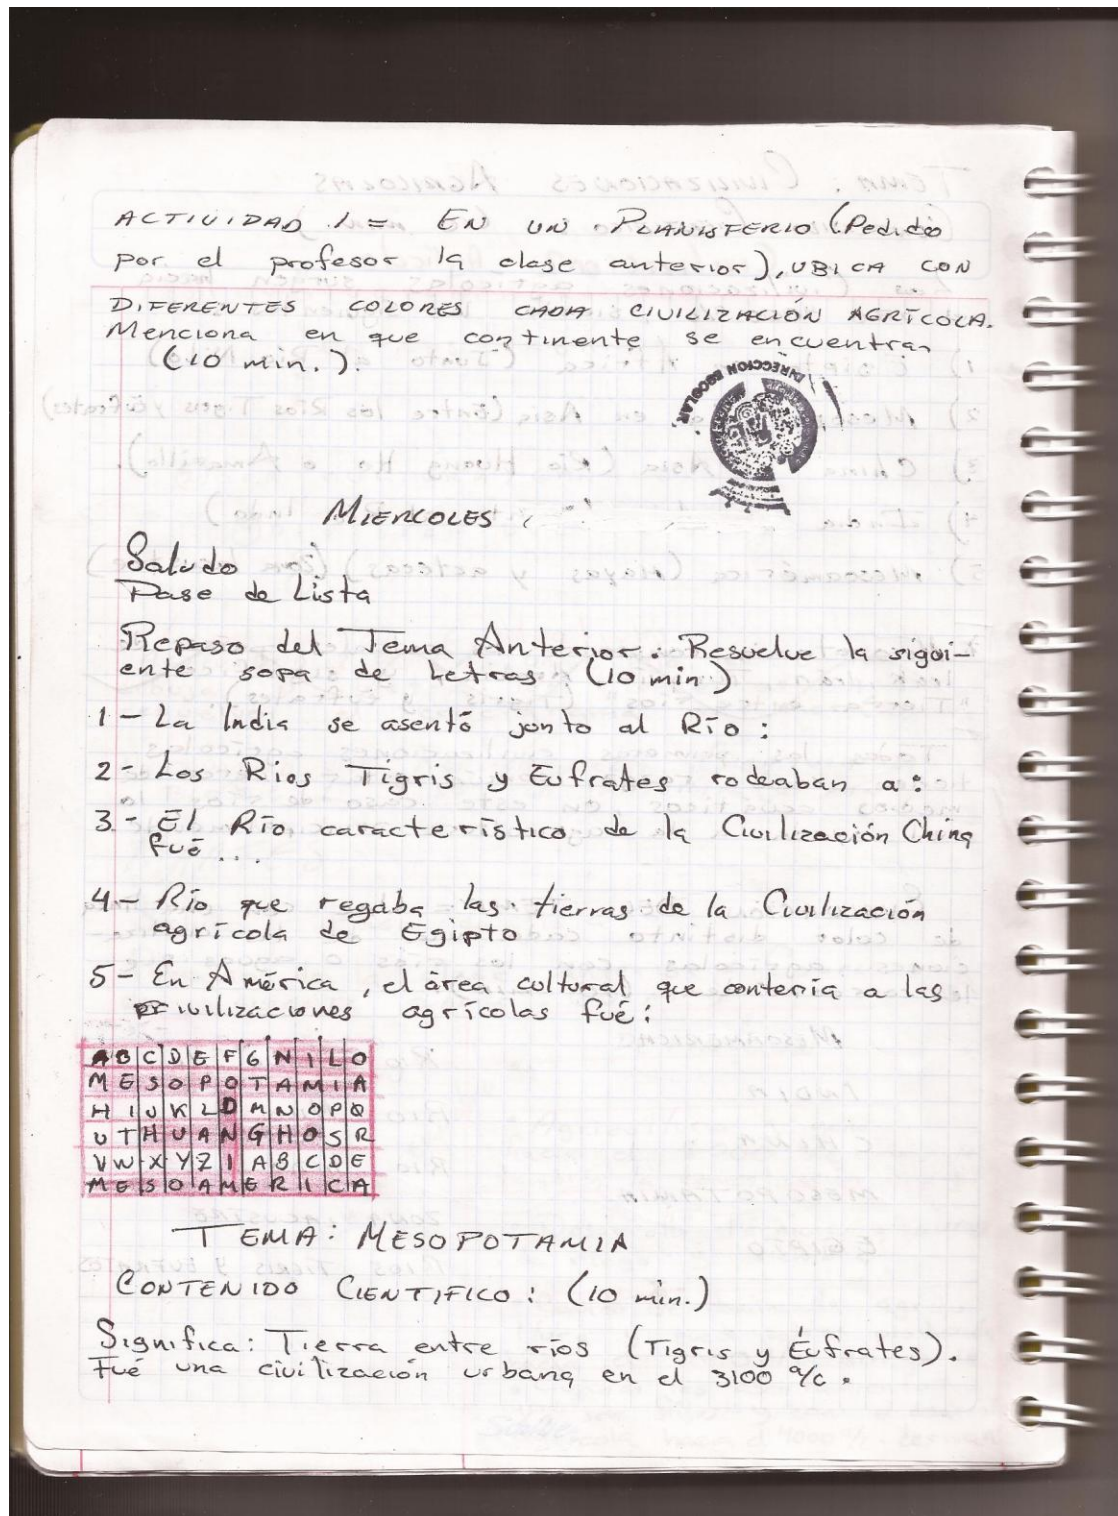 ACTIVIDAD 1= EN UN PLANISFERIO (Pedido
por el profesor la clase anterior), UBICA CON
DIFERENTES COLORES CADA CIVILIZACIÓN AGRÍCOLA.
Menciona en que continente se encuentran
(10 min.).
DIRECCION ESCOLAR
MIERCOLES
Saludo
Pase de Lista
Repaso del Tema Anterior. Resuelve la sigui-
ente sopa de Letras (10 min)
1- La India se asentó junto al Río:
2- Los Rios Tigris y Eufrates rodeaban a:
3- El Río característico de la Civilización China
fué...
4- Río que regaba las tierras de la Civilización
agrícola de Egipto
5- En América, el área cultural que contenía a las
civilizaciones agrícolas fué:
A B C D E F G N I L O
M E S O P O T A M I A
H I J K L D M N O P Q
U T H U A N G H O S R
V W X Y Z I A B C D E
M E S O A M E R I C A
TEMA: MESOPOTAMIA
CONTENIDO CIENTIFICO: (10 min.)
Significa: Tierra entre ríos (Tigris y Éufrates).
Fué una civilización urbana en el 3100 a/c.